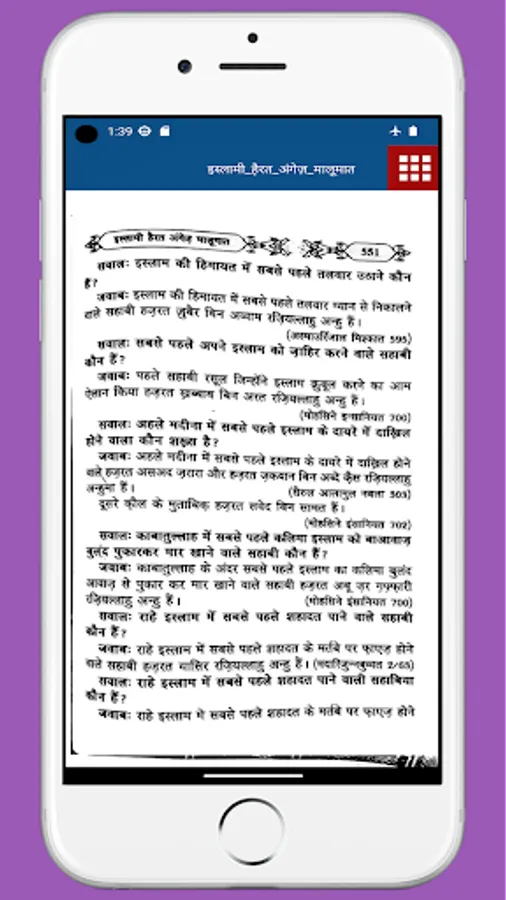 1:39
इस्लामी_हैरत_अंगेज़_मालूमात
इस्लामी हैरत अंगेज़ मालूमात 551
सवालः इस्लाम की हिमायत में सबसे पहले तलवार उठाने कौन
हैं?
जवाबः इस्लाम की हिमायत में सबसे पहले तलवार म्यान से निकालने
वाले सहाबी हज़रत ज़ुबैर बिन अव्वाम रज़ियल्लाहु अन्हु हैं।
(अस्माउर्रिजाल मिश्कात 595)
सवालः सबसे पहले अपने इस्लाम को ज़ाहिर करने वाले सहाबी
कौन हैं?
जवाबः पहले सहाबी रसूल जिन्होंने इस्लाम क़ुबूल करने का आम
ऐलान किया हज़रत ख़ब्बाब बिन अरत रज़ियल्लाहु अन्हु हैं।
(मोहसिने इन्सानियत 700)
सवालः अहले मदीना में सबसे पहले इस्लाम के दायरे में दाख़िल
होने वाला कौन शख़्स है?
जवाबः अहले मदीना में सबसे पहले इस्लाम के दायरे में दाख़िल होने
वाले हज़रत असअद ज़रारा और हज़रत ज़कवान बिन अब्दे क़ैस रज़ियल्लाहु
अन्हुमा हैं।
दूसरे क़ौल के मुताबिक़ हज़रत सवेद बिन सामत हैं।
(मोहसिने इंसानियत 702)
सवालः काबातुल्लाह में सबसे पहले कलिमा इस्लाम को बाआवाज़
बुलंद पुकारकर मार खाने वाले सहाबी कौन हैं?
जवाबः काबातुल्लाह के अंदर सबसे पहले इस्लाम का कलिमा बुलंद
आवाज़ से पुकार कर मार खाने वाले सहाबी हज़रत अबू ज़र ग़फ़्फ़ारी
रज़ियल्लाहु अन्हु हैं। (मोहसिने इंसानियत 700)
सवालः राहे इस्लाम में सबसे पहले शहादत पाने वाले सहाबी
कौन हैं?
जवाबः राहे इस्लाम में सबसे पहले शहादत के मर्तबे पर फ़ाएज़ होने
वाले सहाबी हज़रत यासिर रज़ियल्लाहु अन्हु हैं। 2/65)
सवालः राहे इस्लाम में सबसे पहले शहादत पाने वाली सहाबिया
कौन हैं?
जवाबः राहे इस्लाम में सबसे पहले शहादत के मर्तबे पर फ़ाएज़ होने